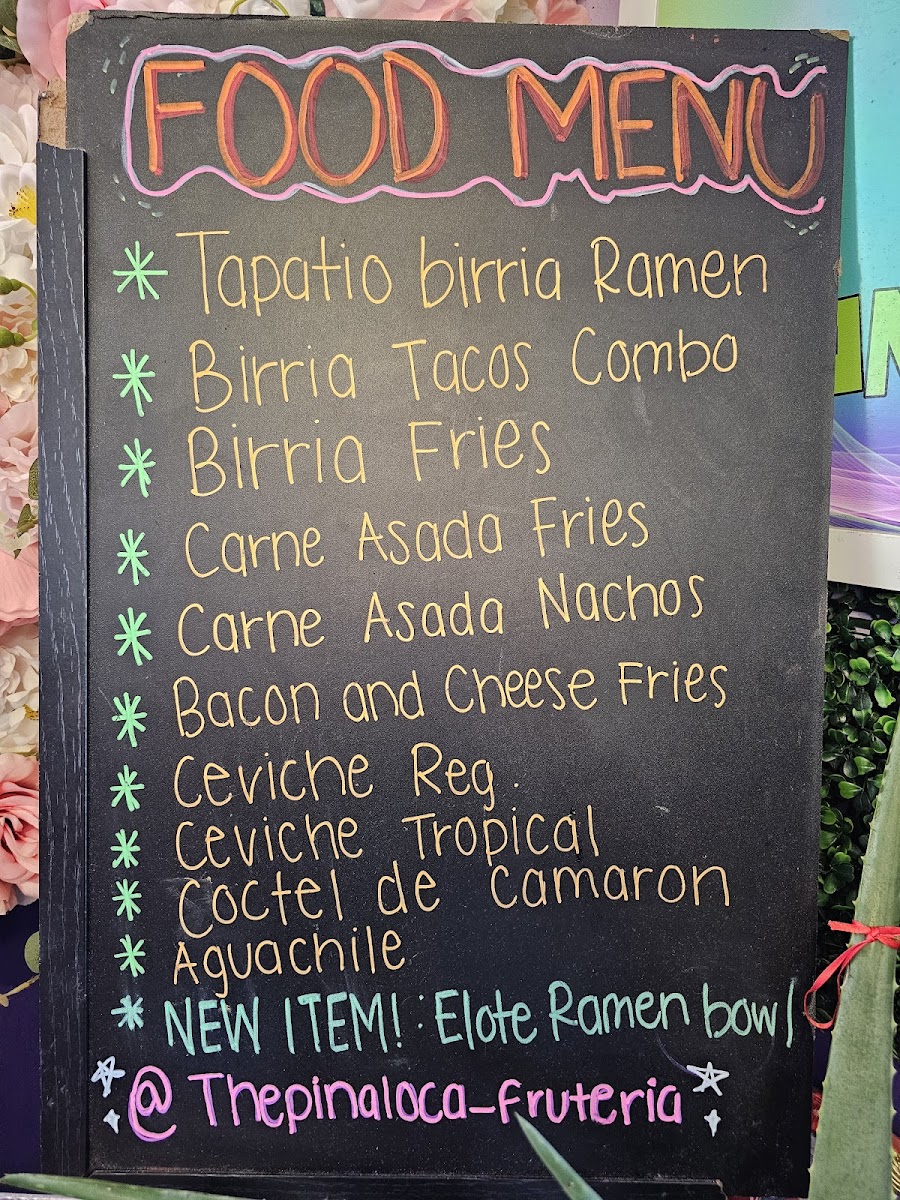 FOOD MENU
* Tapatio birria Ramen
* Birria Tacos Combo
* Birria Fries
* Carne Asada Fries
* Carne Asada Nachos
* Bacon and Cheese Fries
* Ceviche Reg.
* Ceviche Tropical
* Coctel de Camaron
* Aguachile
* NEW ITEM! : Elote Ramen bowl
@Thepinaloca_fruteria